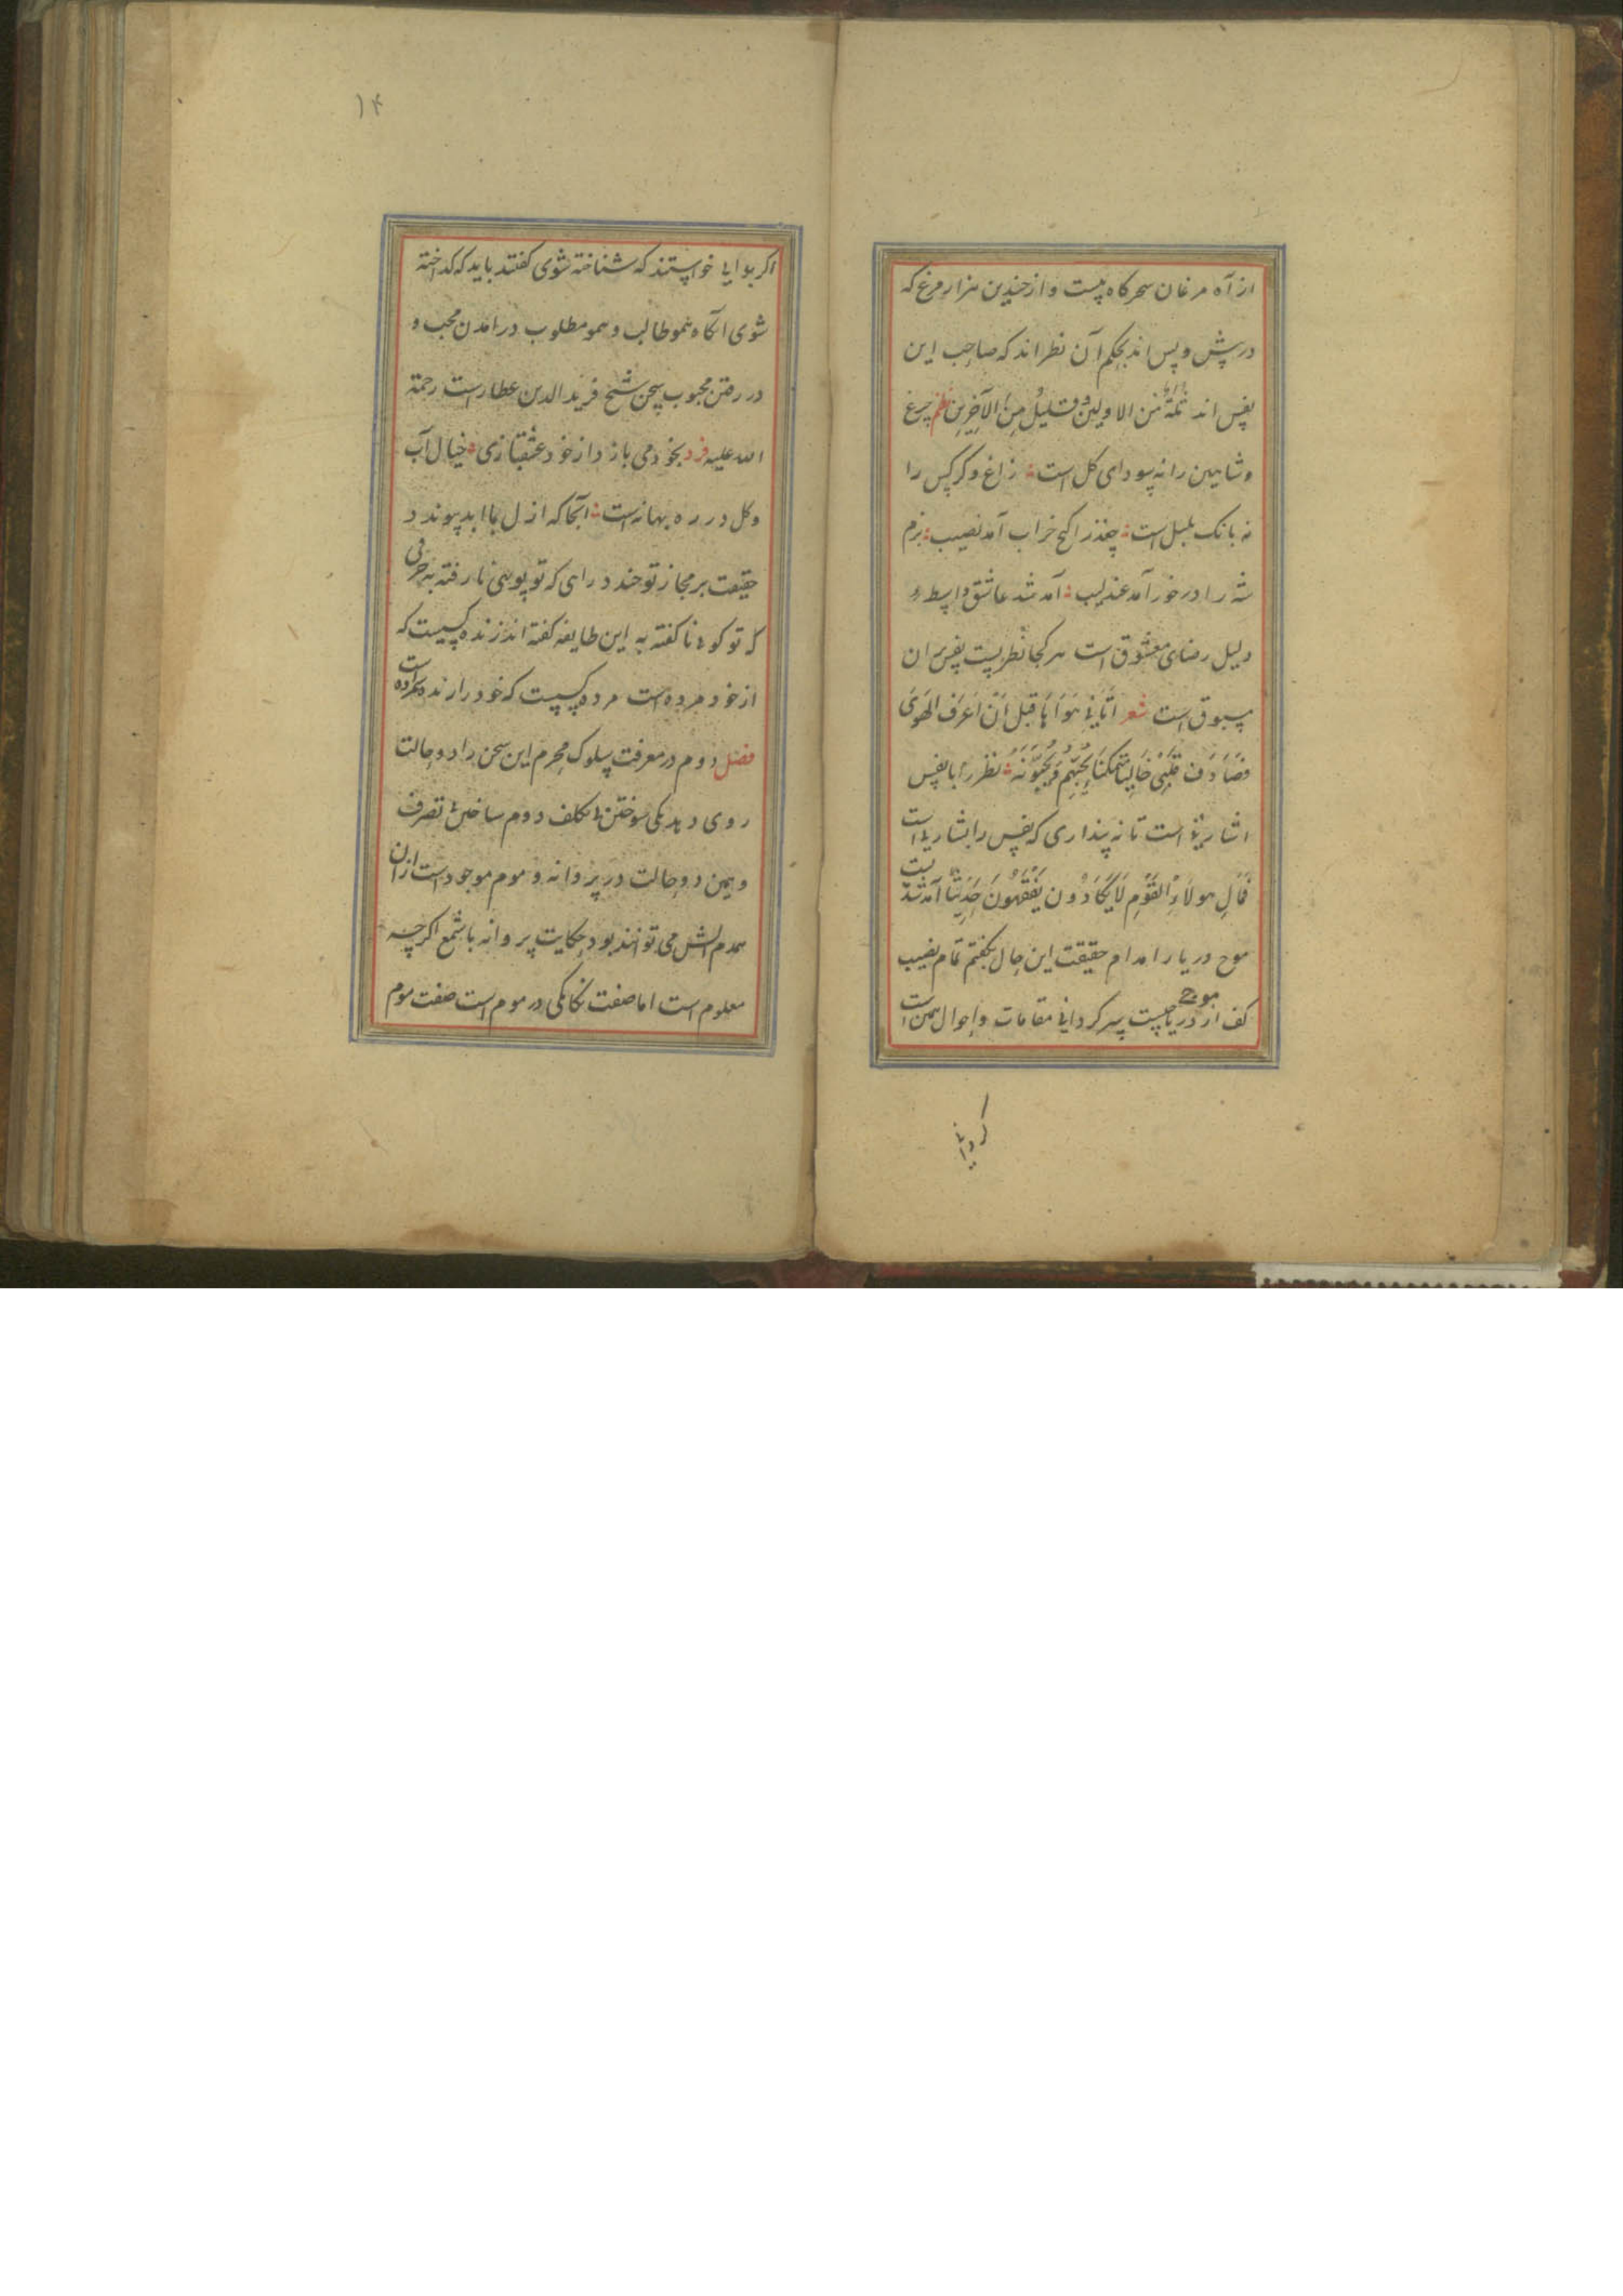 از آه مرغان سحرکاه پست و از چندین هزار مرغ که
در پیش و پس اند بحکم آن نظر اند که صاحب این
نفس اند ثلة من الاولین وقلیل من الآخرین نظم چرغ
و شاهین را نه سودای کل است زاغ و کرکس را
نه بانک بلبل است چغذ را کنج خراب آمد نصیب بزم
شه را در خور آمد عندلیب آمد شد عاشق واسطهٔ
دلیل رضای معشوق است هر کجا نظریست نفس بران
مسبوق است شعر اتانی هواها قبل ان اعرف الهوی
فصادف قلبی خالیا فتمکنا یحبهم و یحبونه نظر را با نفس
اشارتی است تا نه پنداری که نفس را بشارتی است
فمال هولاء القوم لا یکادون یفقهون حدیثا آمد شد
موج دریا را مدام حقیقت این حال بکفتم تمام نصیب
کف از موج دریا چیست سرکردانی مقامات و احوال همین است
کردیا
۱۴
اکر بوایی خواستند که شناخته شوی کفتند باید که کداخته
شوی آنکاه همو طالب و همو مطلوب در آمدن محب و
در رفتن محبوب سخن شیخ فرید الدین عطار است رحمة
الله علیه فرد بخود می بازد از خود عشقبازی خیال آب
و کل در ره بهانه است آنجا که ازل با ابد پیوندد
حقیقت بر مجاز تو خندد راهی که تو پویی نا رفته به حرفی
که تو کویی ناکفته به این طایفه کفته اند زنده کیست که
از خود مرده است مرده کیست که خود را زنده کرده است
فصل دوم در معرفت سلوک محرم این سخن را دو حالت
روی دهد یکی سوختن بی تکلف دوم ساختن بی تصرف
و همین دو حالت در پروانه و موم موجود است ازان
همدم آتش می توانند بود حکایت پروانه با شمع اکرچه
معلوم است اما صفت یکانکی در موم است صفت موم